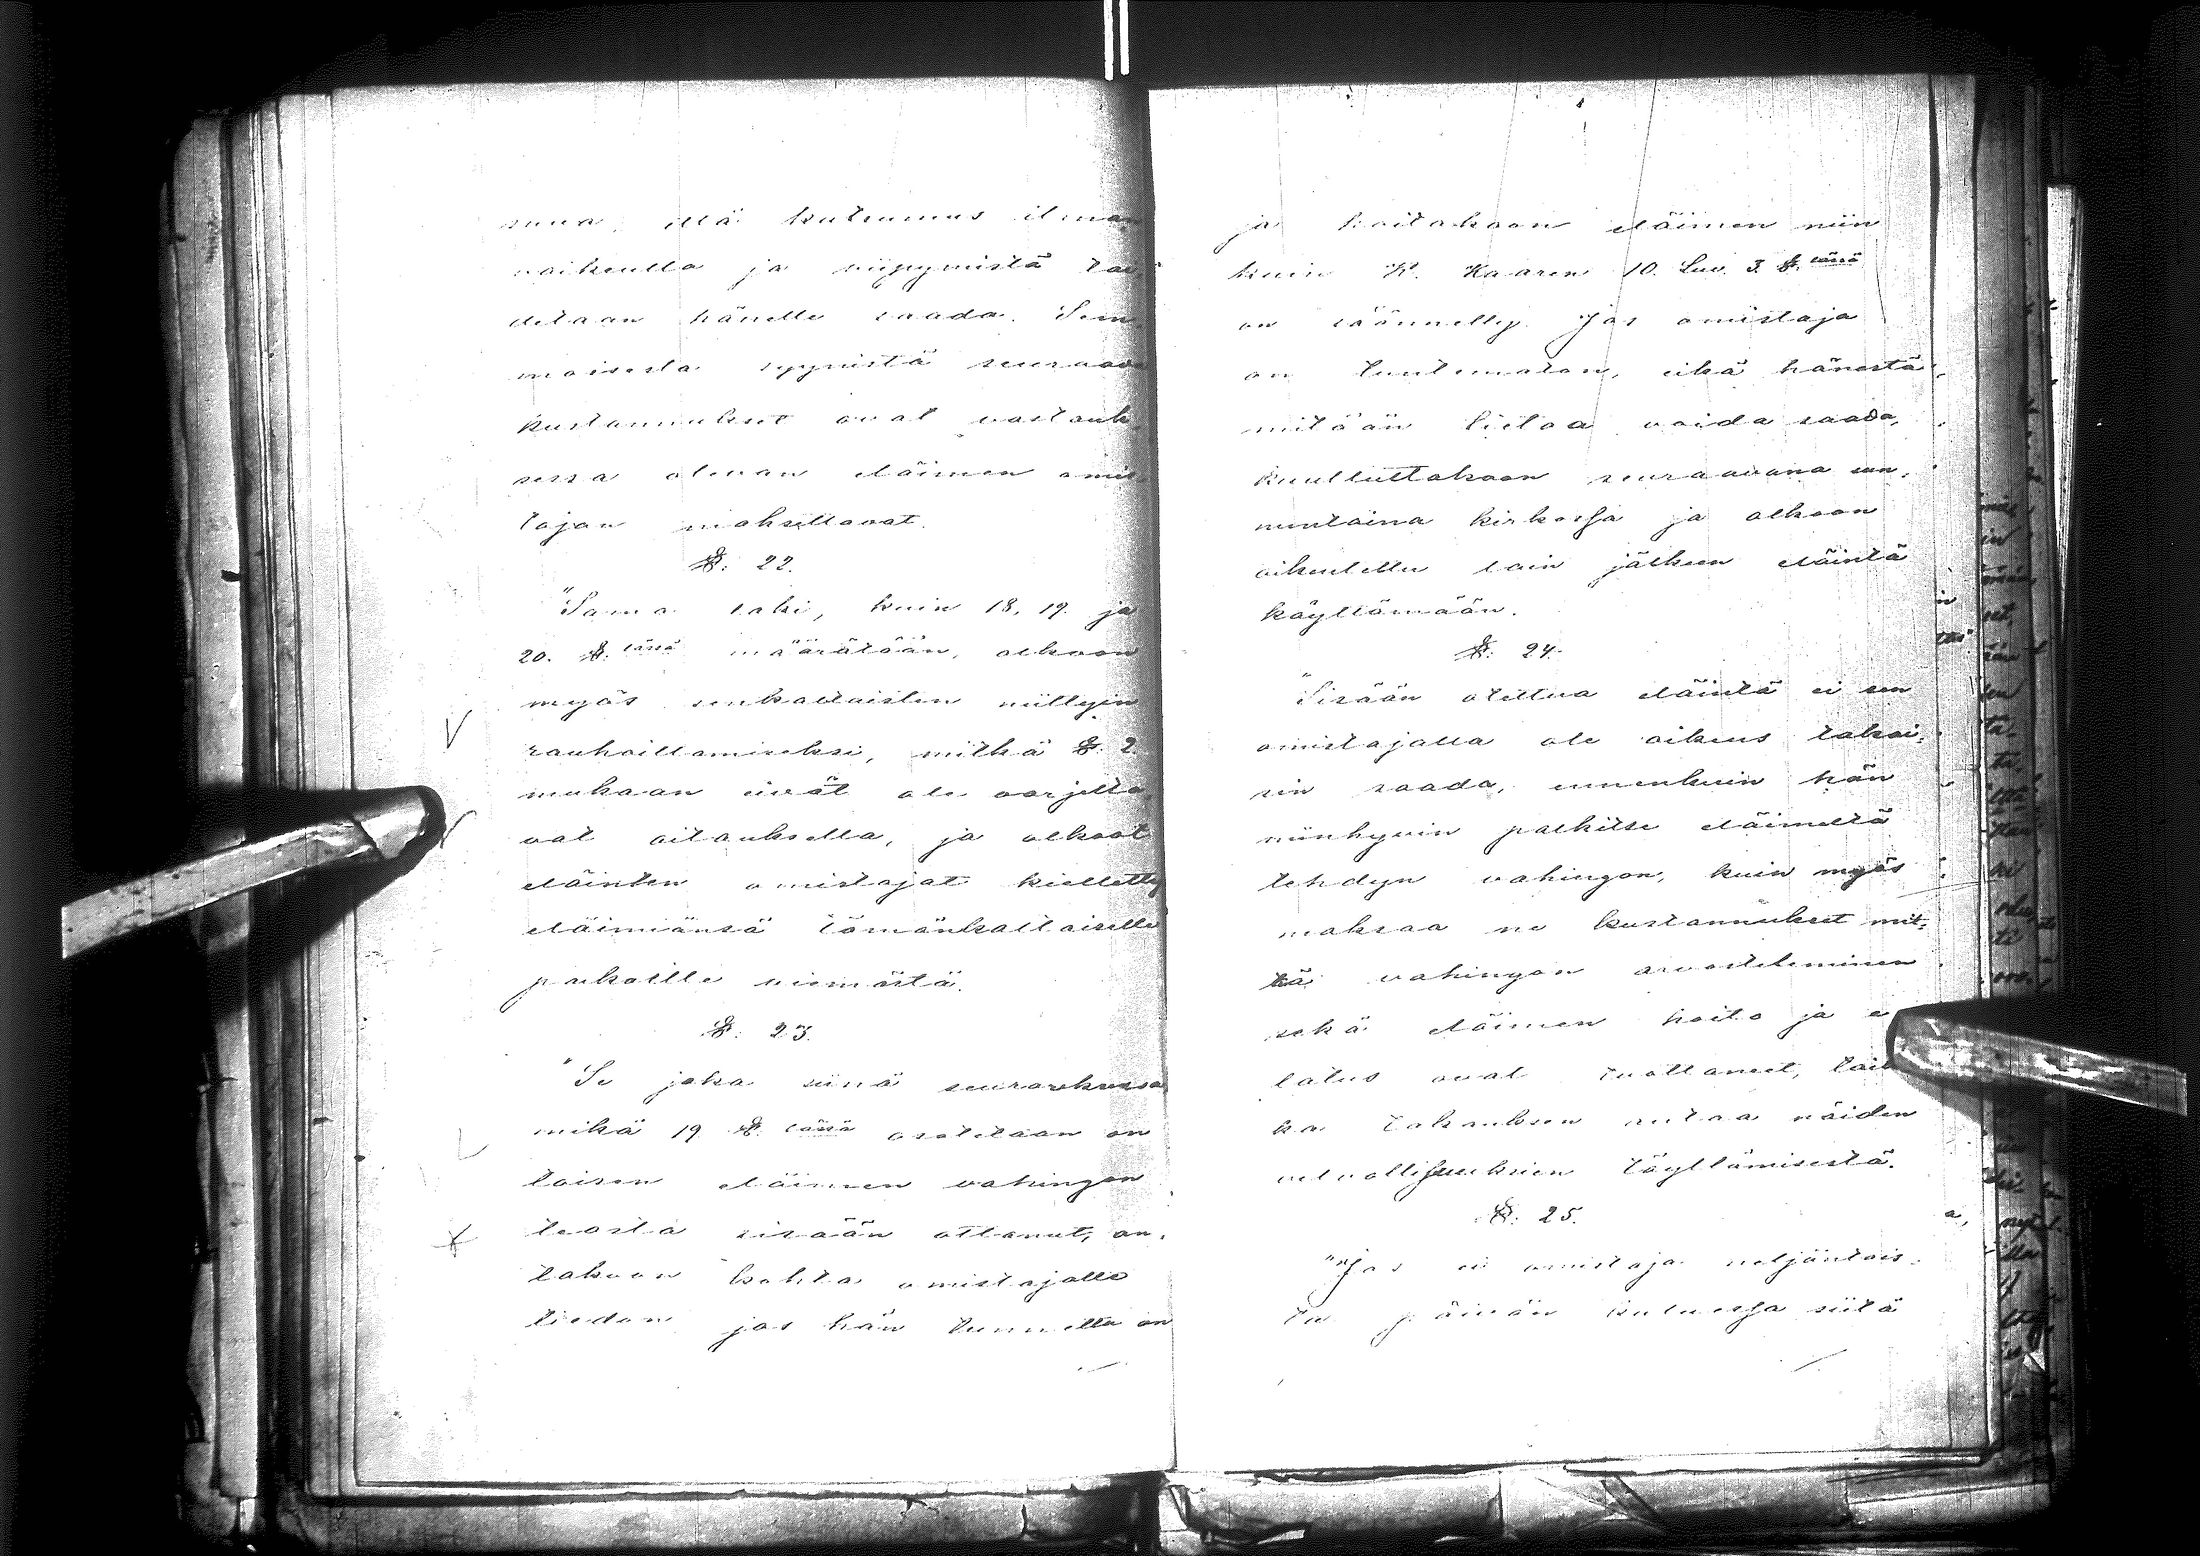 suua, että kutsumus ilman
vaikeutta ja viipymistä tai
detaan hänelle saada. Sem-
moisesta syynistä seuraava
kustannukset ovat vastauk-
sessa olevan eläimen omis
tajan maksettavat.
§. 22.
"Sama laki, kuin 18, 19. ja
20. §. lässä määrätään, olkoon
myös senkaltaisten niittyin
rauhoittamiseksi, mitkä §. 2.
mukaan eivät ole varjelta
vat aitauksella, ja olkoot
eläinten omistajat kielletty
eläimiänsä tämänkaltaiselle
paikoille viemästä.
§. 23.
"Se joka siinä seurauksessa
mikä 19 §. lässä osotetaan on
toisen eläimen vahingon
teosta sisään ottanut, an-
takoon kohta omistajalle
tiedon jos hän tunnettu on
ja hoitakoon eläimen niin
kuin K. Kaaren 10. Luv. 3. §. lässä
on säännelty. Jos omistaja
on tuntematon, eikä hänestä
mitään tietoa voida saada,
kuulluttakoon seuraavana sun-
nuntaina kirkossa ja olkoon
oikeutettu sain jälkeen eläintä
käyttämään.
§. 24.
"Sisään otettua eläintä ei sen
omistajalla ole oikeus takai-
sin saada, ennenkuin hän
niinhyvin palkitse eläimeltä
tehdyn vahingon, kuin myös
maksaa ne kustannukset mit-
kä vahingon arvosteleminen
sekä eläimen hoito ja e
latus ovat tuottaneet, taik
ka takauksen antaa näiden
velvollisuuksien täyttämisestä.
§. 25.
"Jos ei omistaja neljäntois-
ta päivän kuluessa siitä